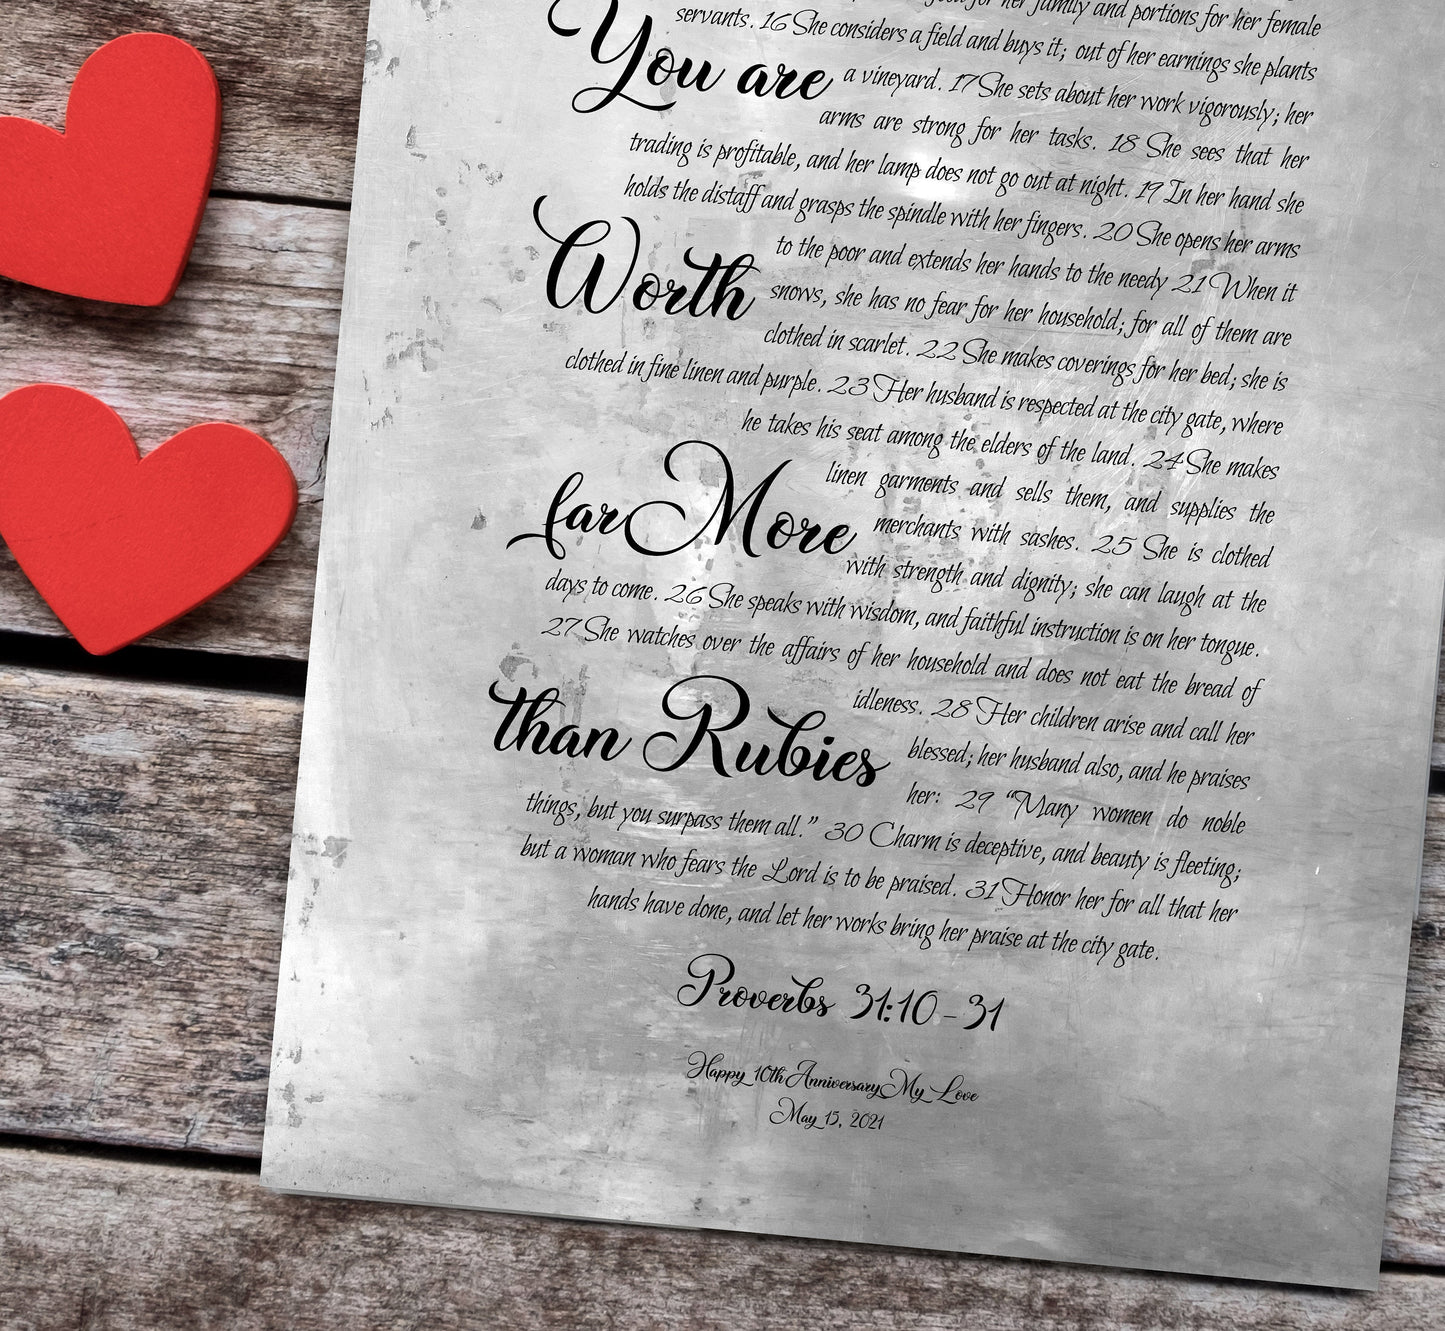 food for her family and portions for her female
servants. 16 She considers a field and buys it; out of her earnings she plants
You are
a vineyard. 17 She sets about her work vigorously; her
arms are strong for her tasks. 18 She sees that her
trading is profitable, and her lamp does not go out at night. 19 In her hand she
holds the distaff and grasps the spindle with her fingers. 20 She opens her arms
Worth
to the poor and extends her hands to the needy 21 When it
snows, she has no fear for her household; for all of them are
clothed in scarlet. 22 She makes coverings for her bed; she is
clothed in fine linen and purple. 23 Her husband is respected at the city gate, where
he takes his seat among the elders of the land. 24 She makes
far More
linen garments and sells them, and supplies the
merchants with sashes. 25 She is clothed
with strength and dignity; she can laugh at the
days to come. 26 She speaks with wisdom, and faithful instruction is on her tongue.
27 She watches over the affairs of her household and does not eat the bread of
than Rubies
idleness. 28 Her children arise and call her
blessed; her husband also, and he praises
her: 29 “Many women do noble
things, but you surpass them all.” 30 Charm is deceptive, and beauty is fleeting;
but a woman who fears the Lord is to be praised. 31 Honor her for all that her
hands have done, and let her works bring her praise at the city gate.
Proverbs 31:10-31
Happy 10th Anniversary My Love
May 15, 2021